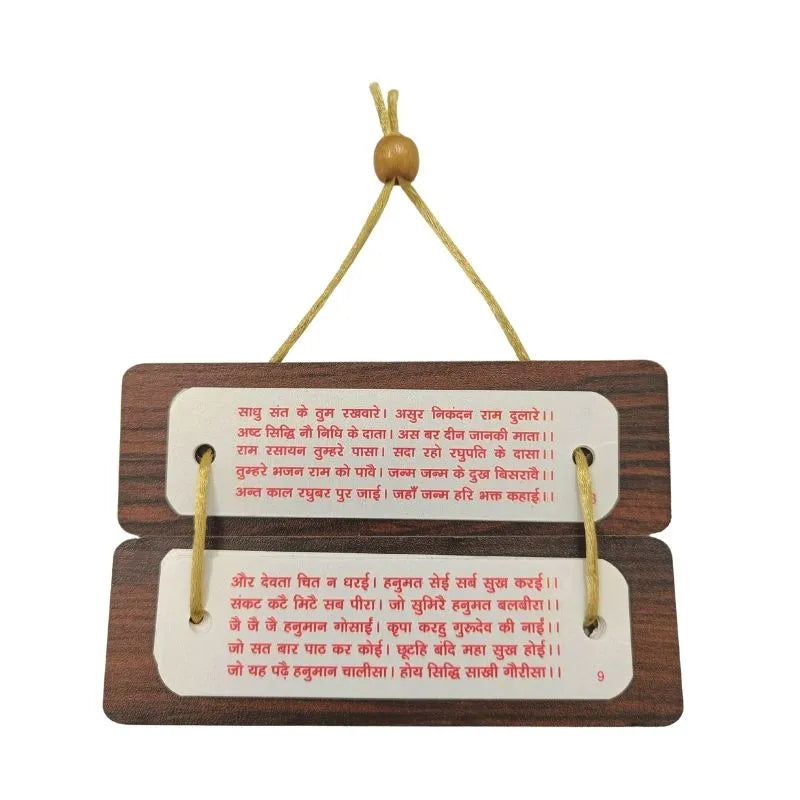 साधु संत के तुम रखवारे। असुर निकंदन राम दुलारे।।
अष्ट सिद्धि नौ निधि के दाता। अस बर दीन जानकी माता।।
राम रसायन तुम्हरे पासा। सदा रहो रघुपति के दासा।।
तुम्हरे भजन राम को पावै। जन्म जन्म के दुख बिसरावै।।
अन्त काल रघुबर पुर जाई। जहाँ जन्म हरि भक्त कहाई।।
और देवता चित न धरई। हनुमत सेई सर्ब सुख करई।।
संकट कटै मिटै सब पीरा। जो सुमिरै हनुमत बलबीरा।।
जै जै जै हनुमान गोसाईं। कृपा करहु गुरुदेव की नाईं।।
जो सत बार पाठ कर कोई। छूटहि बंदि महा सुख होई।।
जो यह पढ़ै हनुमान चालीसा। होय सिद्धि साखी गौरीसा।।
9